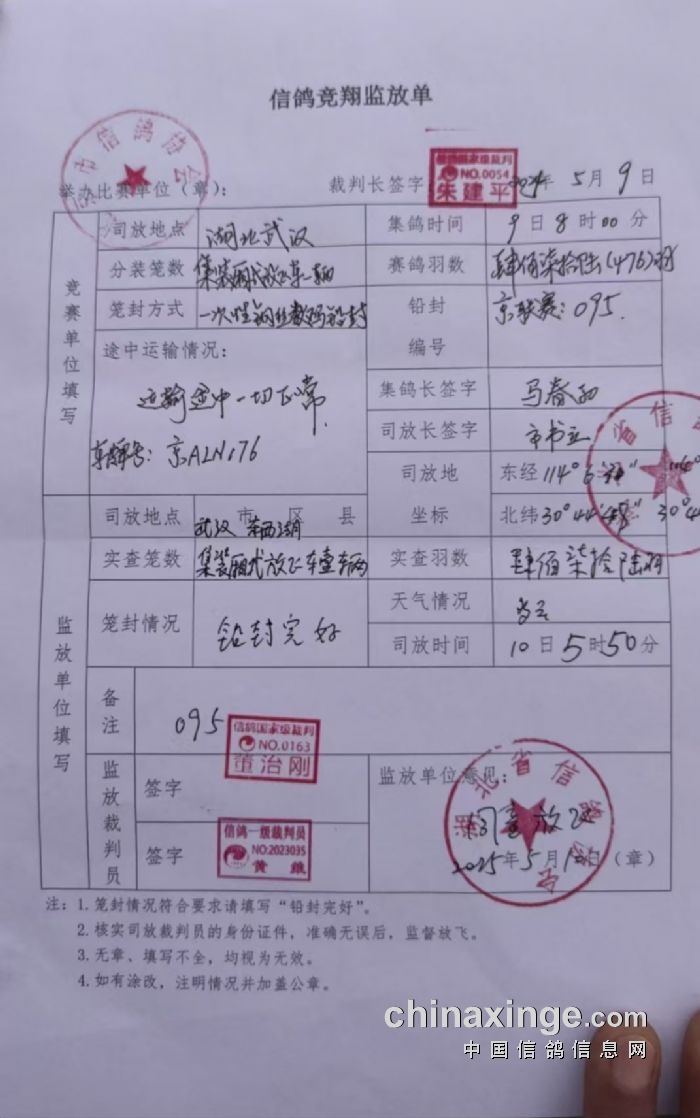 信鸽竞翔监放单
市信鸽协会
举办比赛单位(章): 裁判长签字: 信鸽国家级裁判 NO.0054 朱建平 年5月9日
竞赛单位填写
司放地点 湖北武汉 集鸽时间 9日8时00分
分装笼数 集装厢式放飞车一辆 赛鸽羽数 肆佰柒拾陆(476)羽
笼封方式 一次性钢丝数码铅封 铅封编号 京联赛:095.
途中运输情况:
运输途中一切正常.
车牌号: 京ALN176
集鸽长签字 马春
司放长签字
司放地坐标 东经114°6′
北纬30°44′
监放单位填写
司放地点 武汉市 东西湖区 县
实查笼数 集装厢式放飞车壹辆 实查羽数 肆佰柒拾陆羽
笼封情况 铅封完好 天气情况 多云
司放时间 10日5时50分
备注 095
监放裁判员 签字 信鸽国家级裁判 NO.0163 董治刚
签字 信鸽一级裁判员 NO:2023035 黄
监放单位意见:
同意放飞
2025年5月10日(章)
湖北省信鸽协会
省信
注: 1.笼封情况符合要求请填写“铅封完好”。
2.核实司放裁判员的身份证件,准确无误后,监督放飞。
3.无章、填写不全,均视为无效。
4.如有涂改,注明情况并加盖公章。
chinaxinge.com
中国信鸽信息网